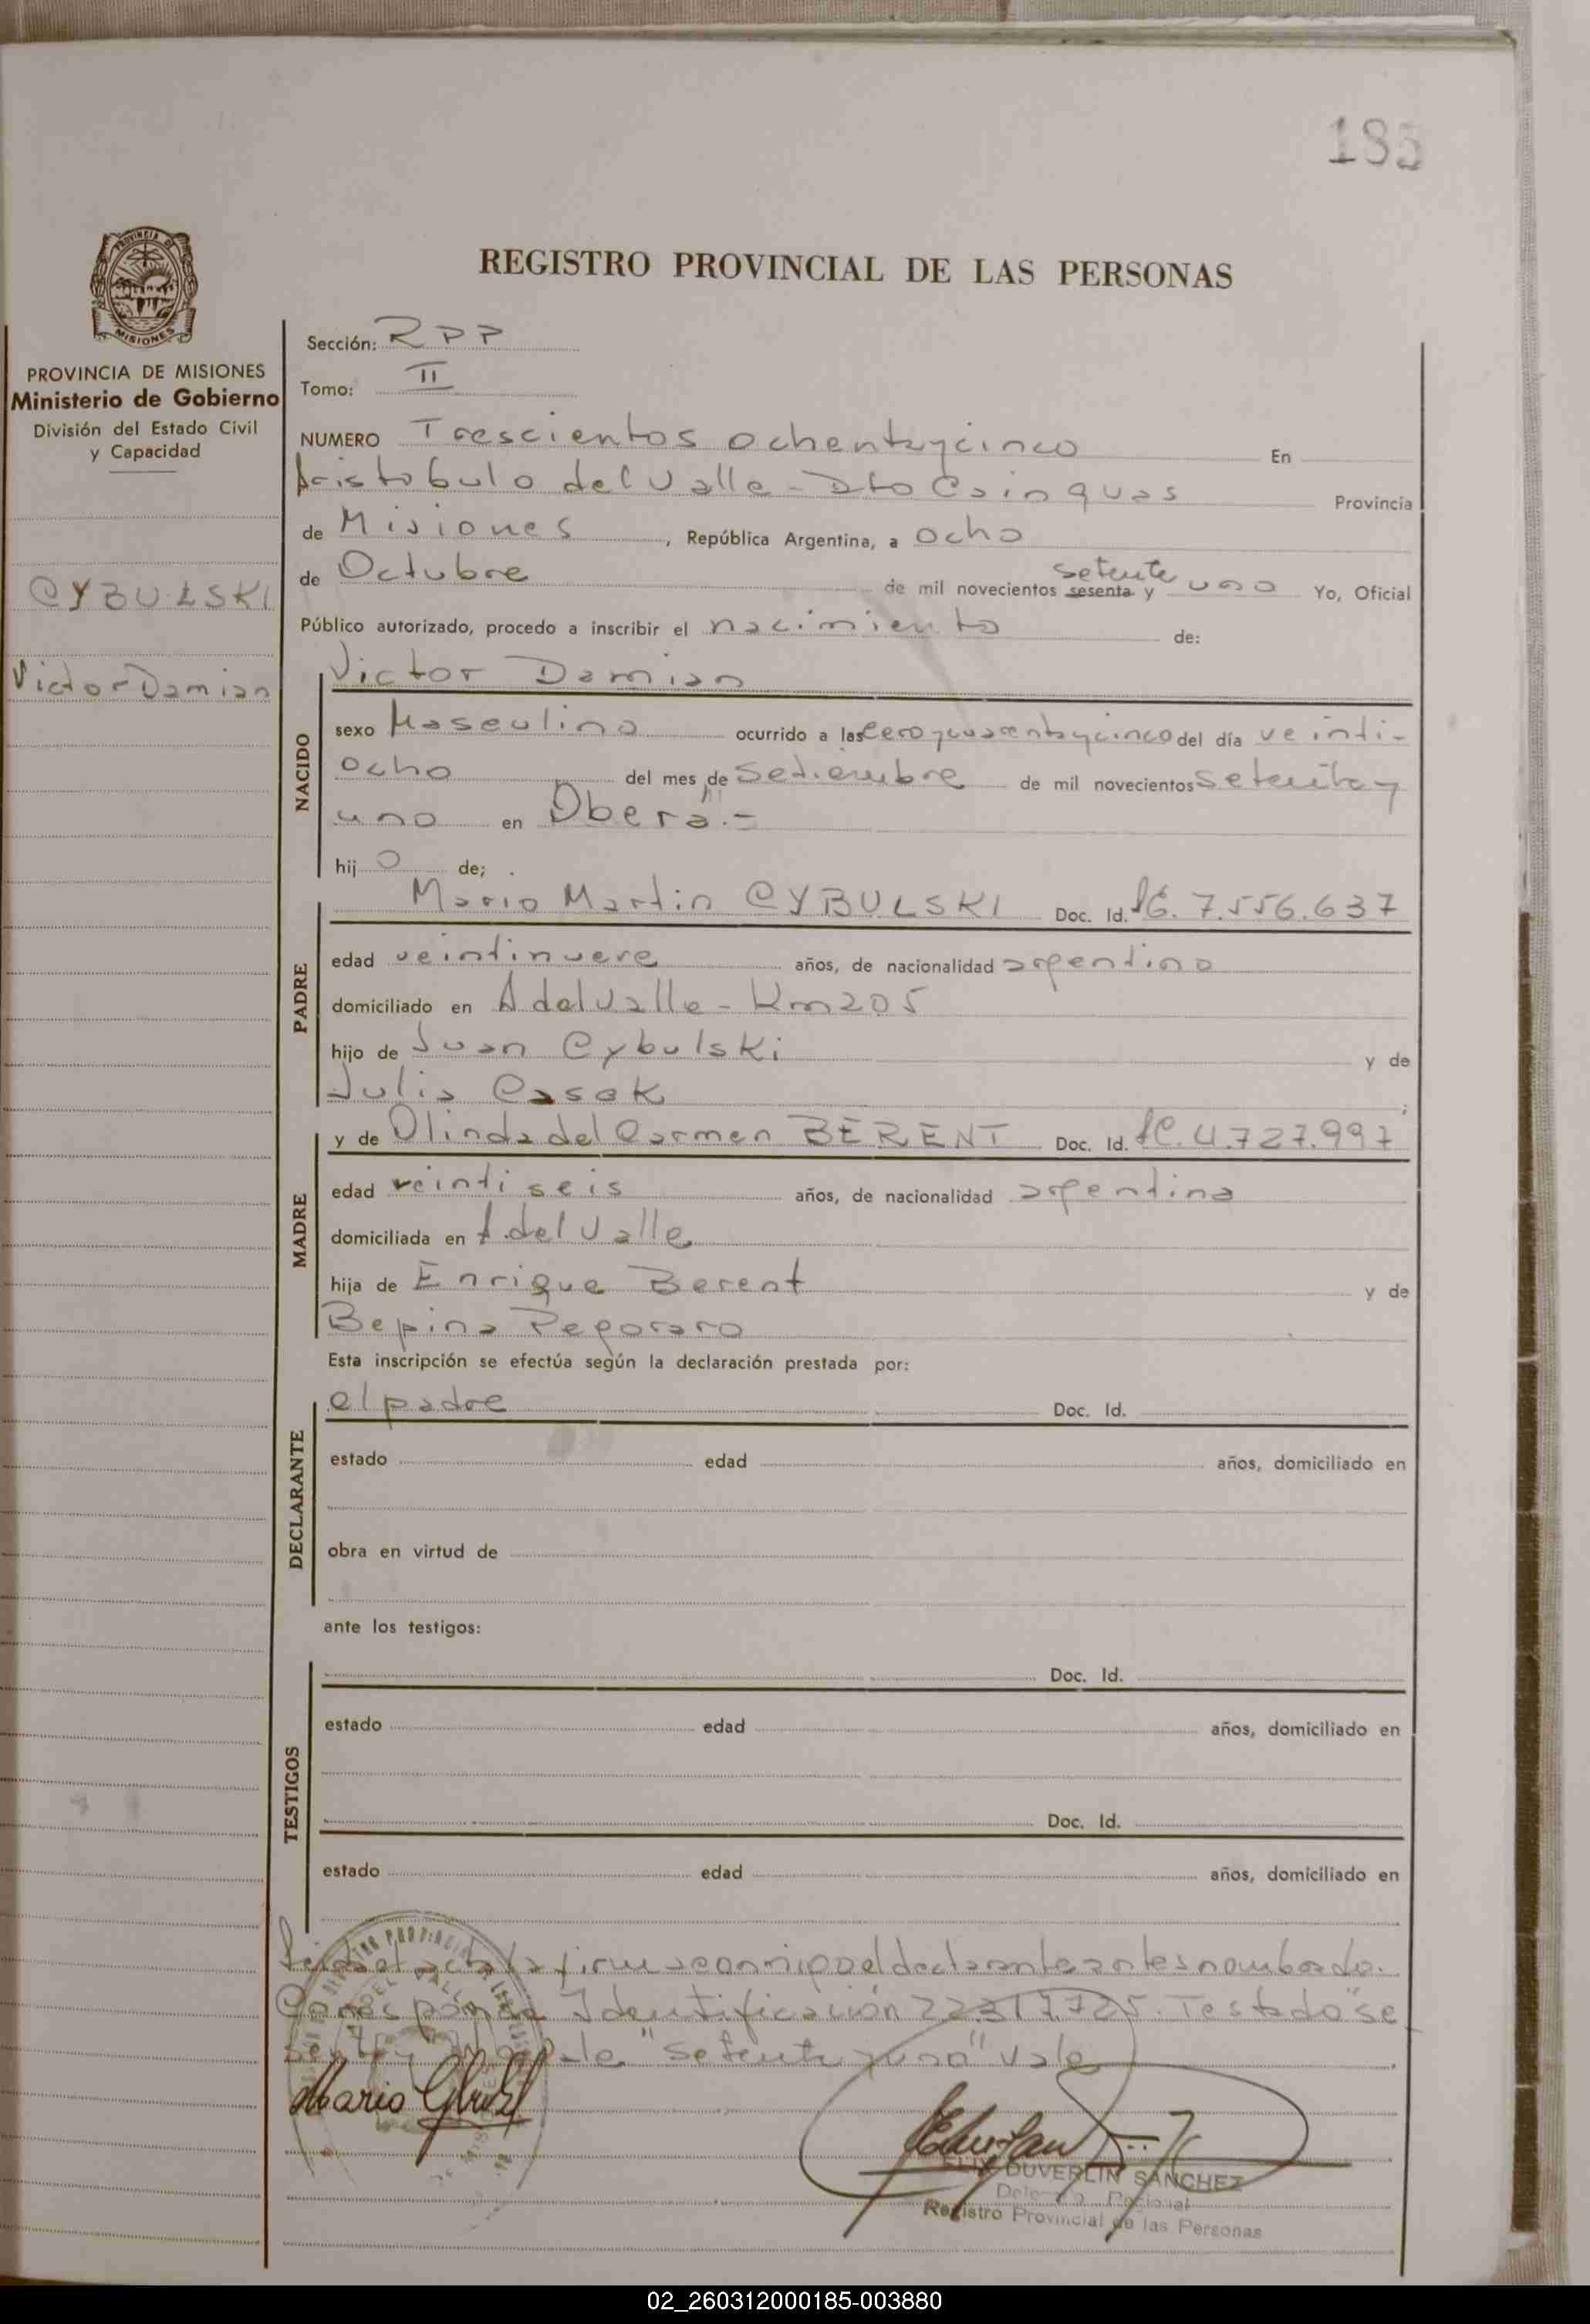 185
REGISTRO PROVINCIAL DE LAS PERSONAS
PROVINCIA DE MISIONES
Ministerio de Gobierno
División del Estado Civil
y Capacidad
CYBULSKI
Victor Damian
Sección: RPP
Tomo: II
NUMERO Trescientos ochentaycinco En
Aristobulo del Valle - Dto Cainguas Provincia
de Misiones, República Argentina, a ocho
de Octubre de mil novecientos sesenta y setenta uno Yo, Oficial
Público autorizado, procedo a inscribir el nacimiento de:
Victor Damian
NACIDO
sexo Masculino ocurrido a las cero y cuarentaycinco del día veinti-
ocho del mes de Setiembre de mil novecientos setenta y
uno en Oberá.-
hijo de;
PADRE
Mario Martin CYBULSKI Doc. Id. 7.556.637
edad veintinueve años, de nacionalidad argentina
domiciliado en A del Valle - Km 205
hijo de Juan Cybulski y de
Julia Casak
MADRE
y de Olinda del Carmen BERENT Doc. Id. LC. 4.727.997
edad veintiseis años, de nacionalidad argentina
domiciliada en A. del Valle
hija de Enrique Berent y de
Bepina Pegoraro
Esta inscripción se efectúa según la declaración prestada por:
DECLARANTE
el padre Doc. Id.
estado edad años, domiciliado en
obra en virtud de
ante los testigos:
TESTIGOS
Doc. Id.
estado edad años, domiciliado en
Doc. Id.
estado edad años, domiciliado en
Leida el acta la firma conmigo el declarante antes nombrado.
Corresponde Identificación 22.317.725. Testado "se
senta y" "setenta y uno" vale
Mario
FELIX DUVERLIN SANCHEZ
Registro Provincial de las Personas
02_260312000185-003880